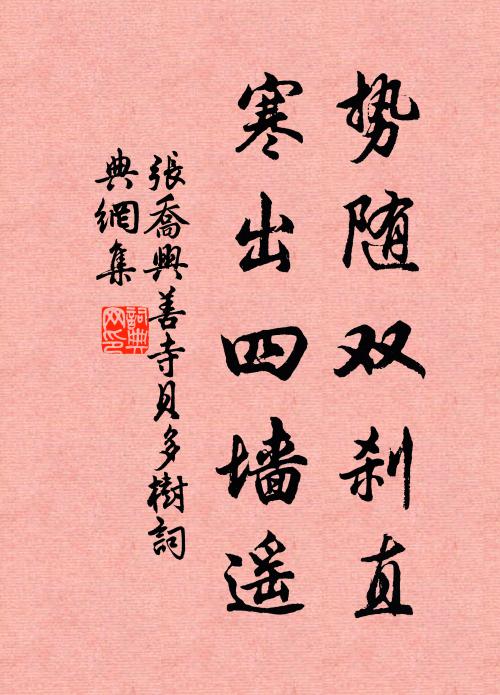 势随双刹直
寒出四墙遥
張喬興善寺貝多樹詞
典網集
詞典
网印